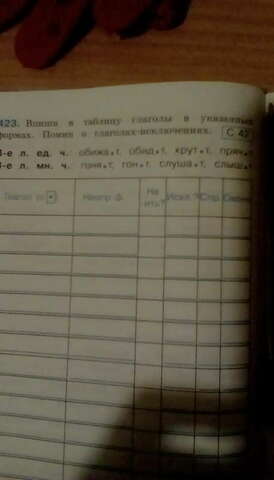 423. Впиши в таблицу глаголы в указанных
формах. Помни о глаголах-исключениях. С 42
3-е л. ед. ч. обижа•т, обид•т, крут•т, пряч•т
3-е л. мн. ч. гон•т, слуша•т, слыш•т
Глагол (с •) Неопр. ф. На -ить? Искл.? Спр.